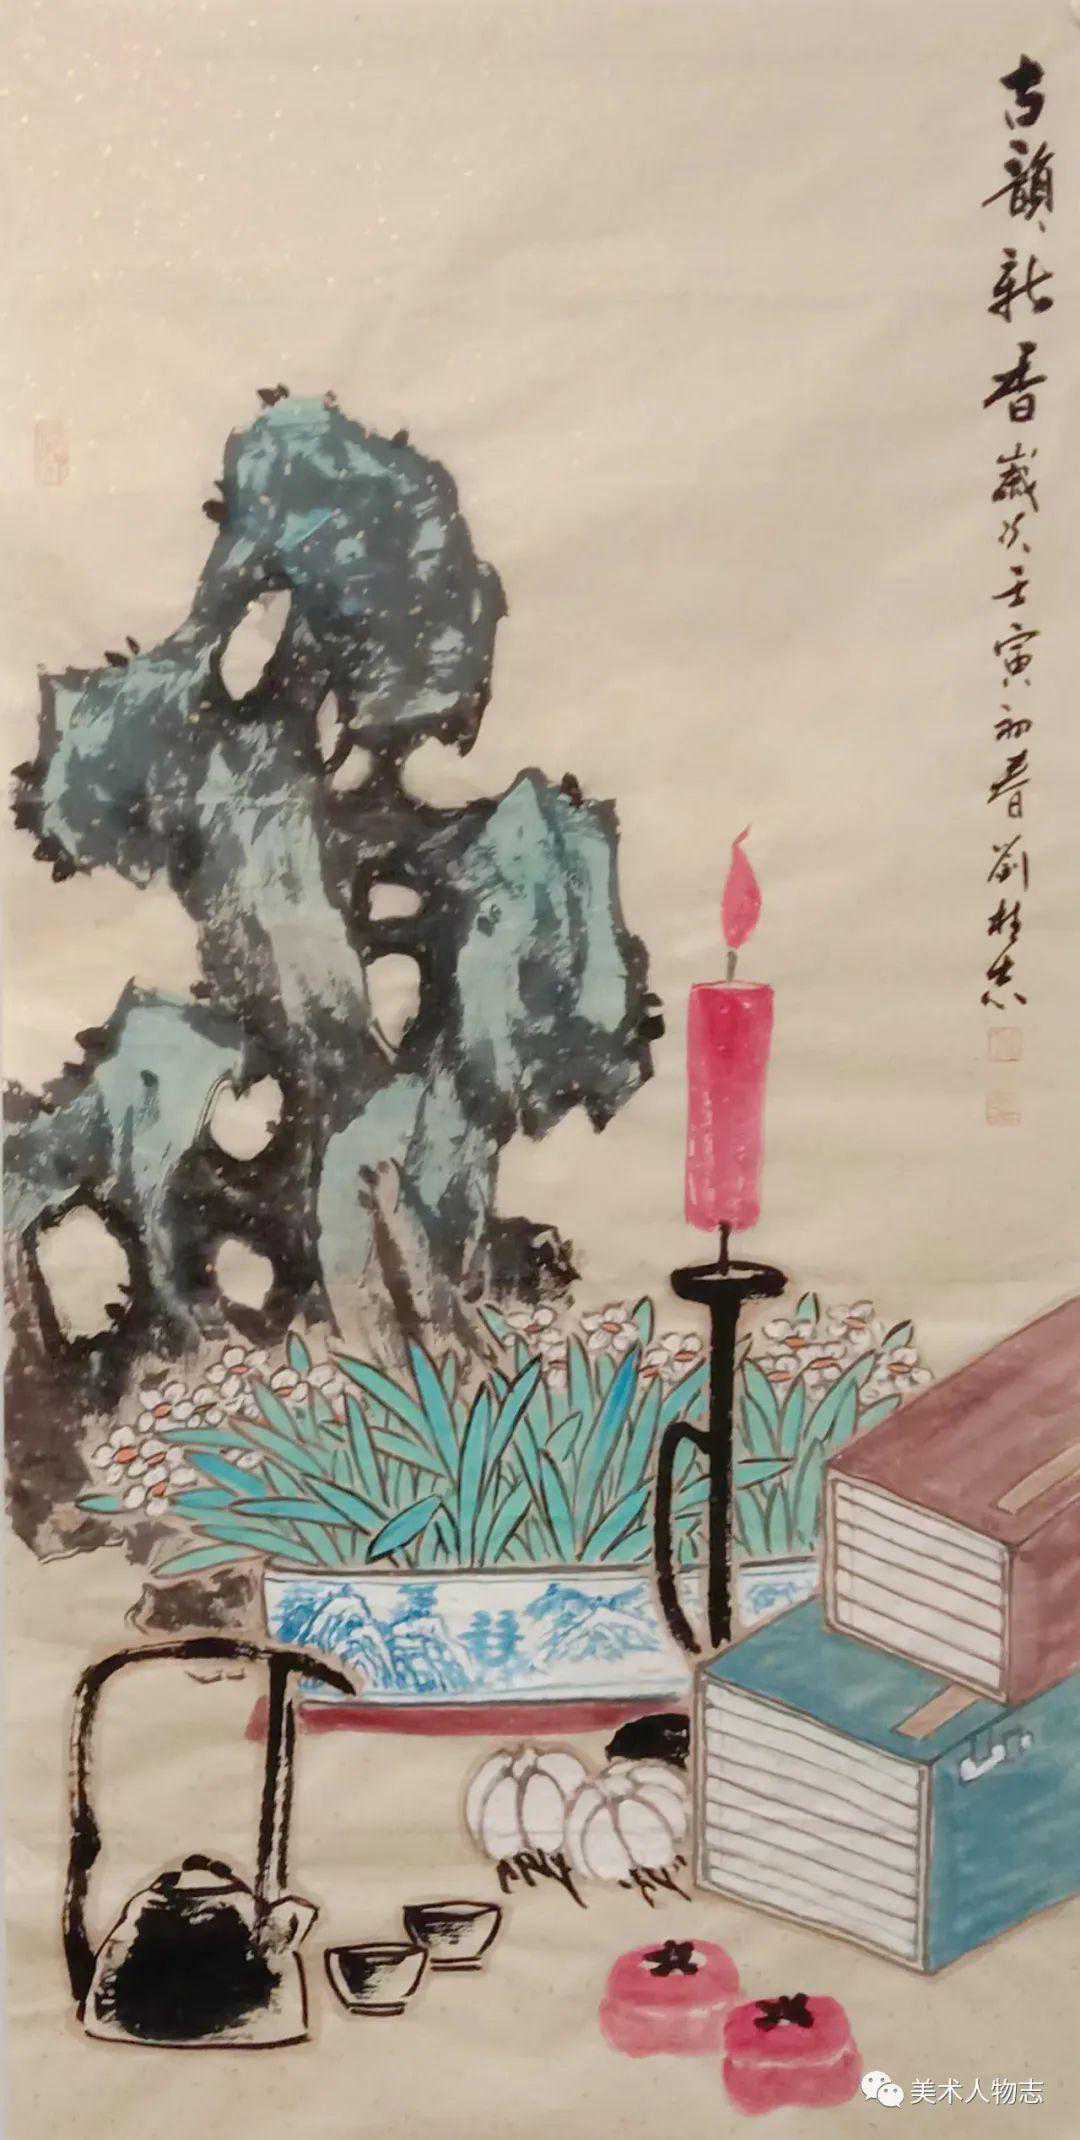 古韻新香歲次壬寅初春劉桂志
美术人物志